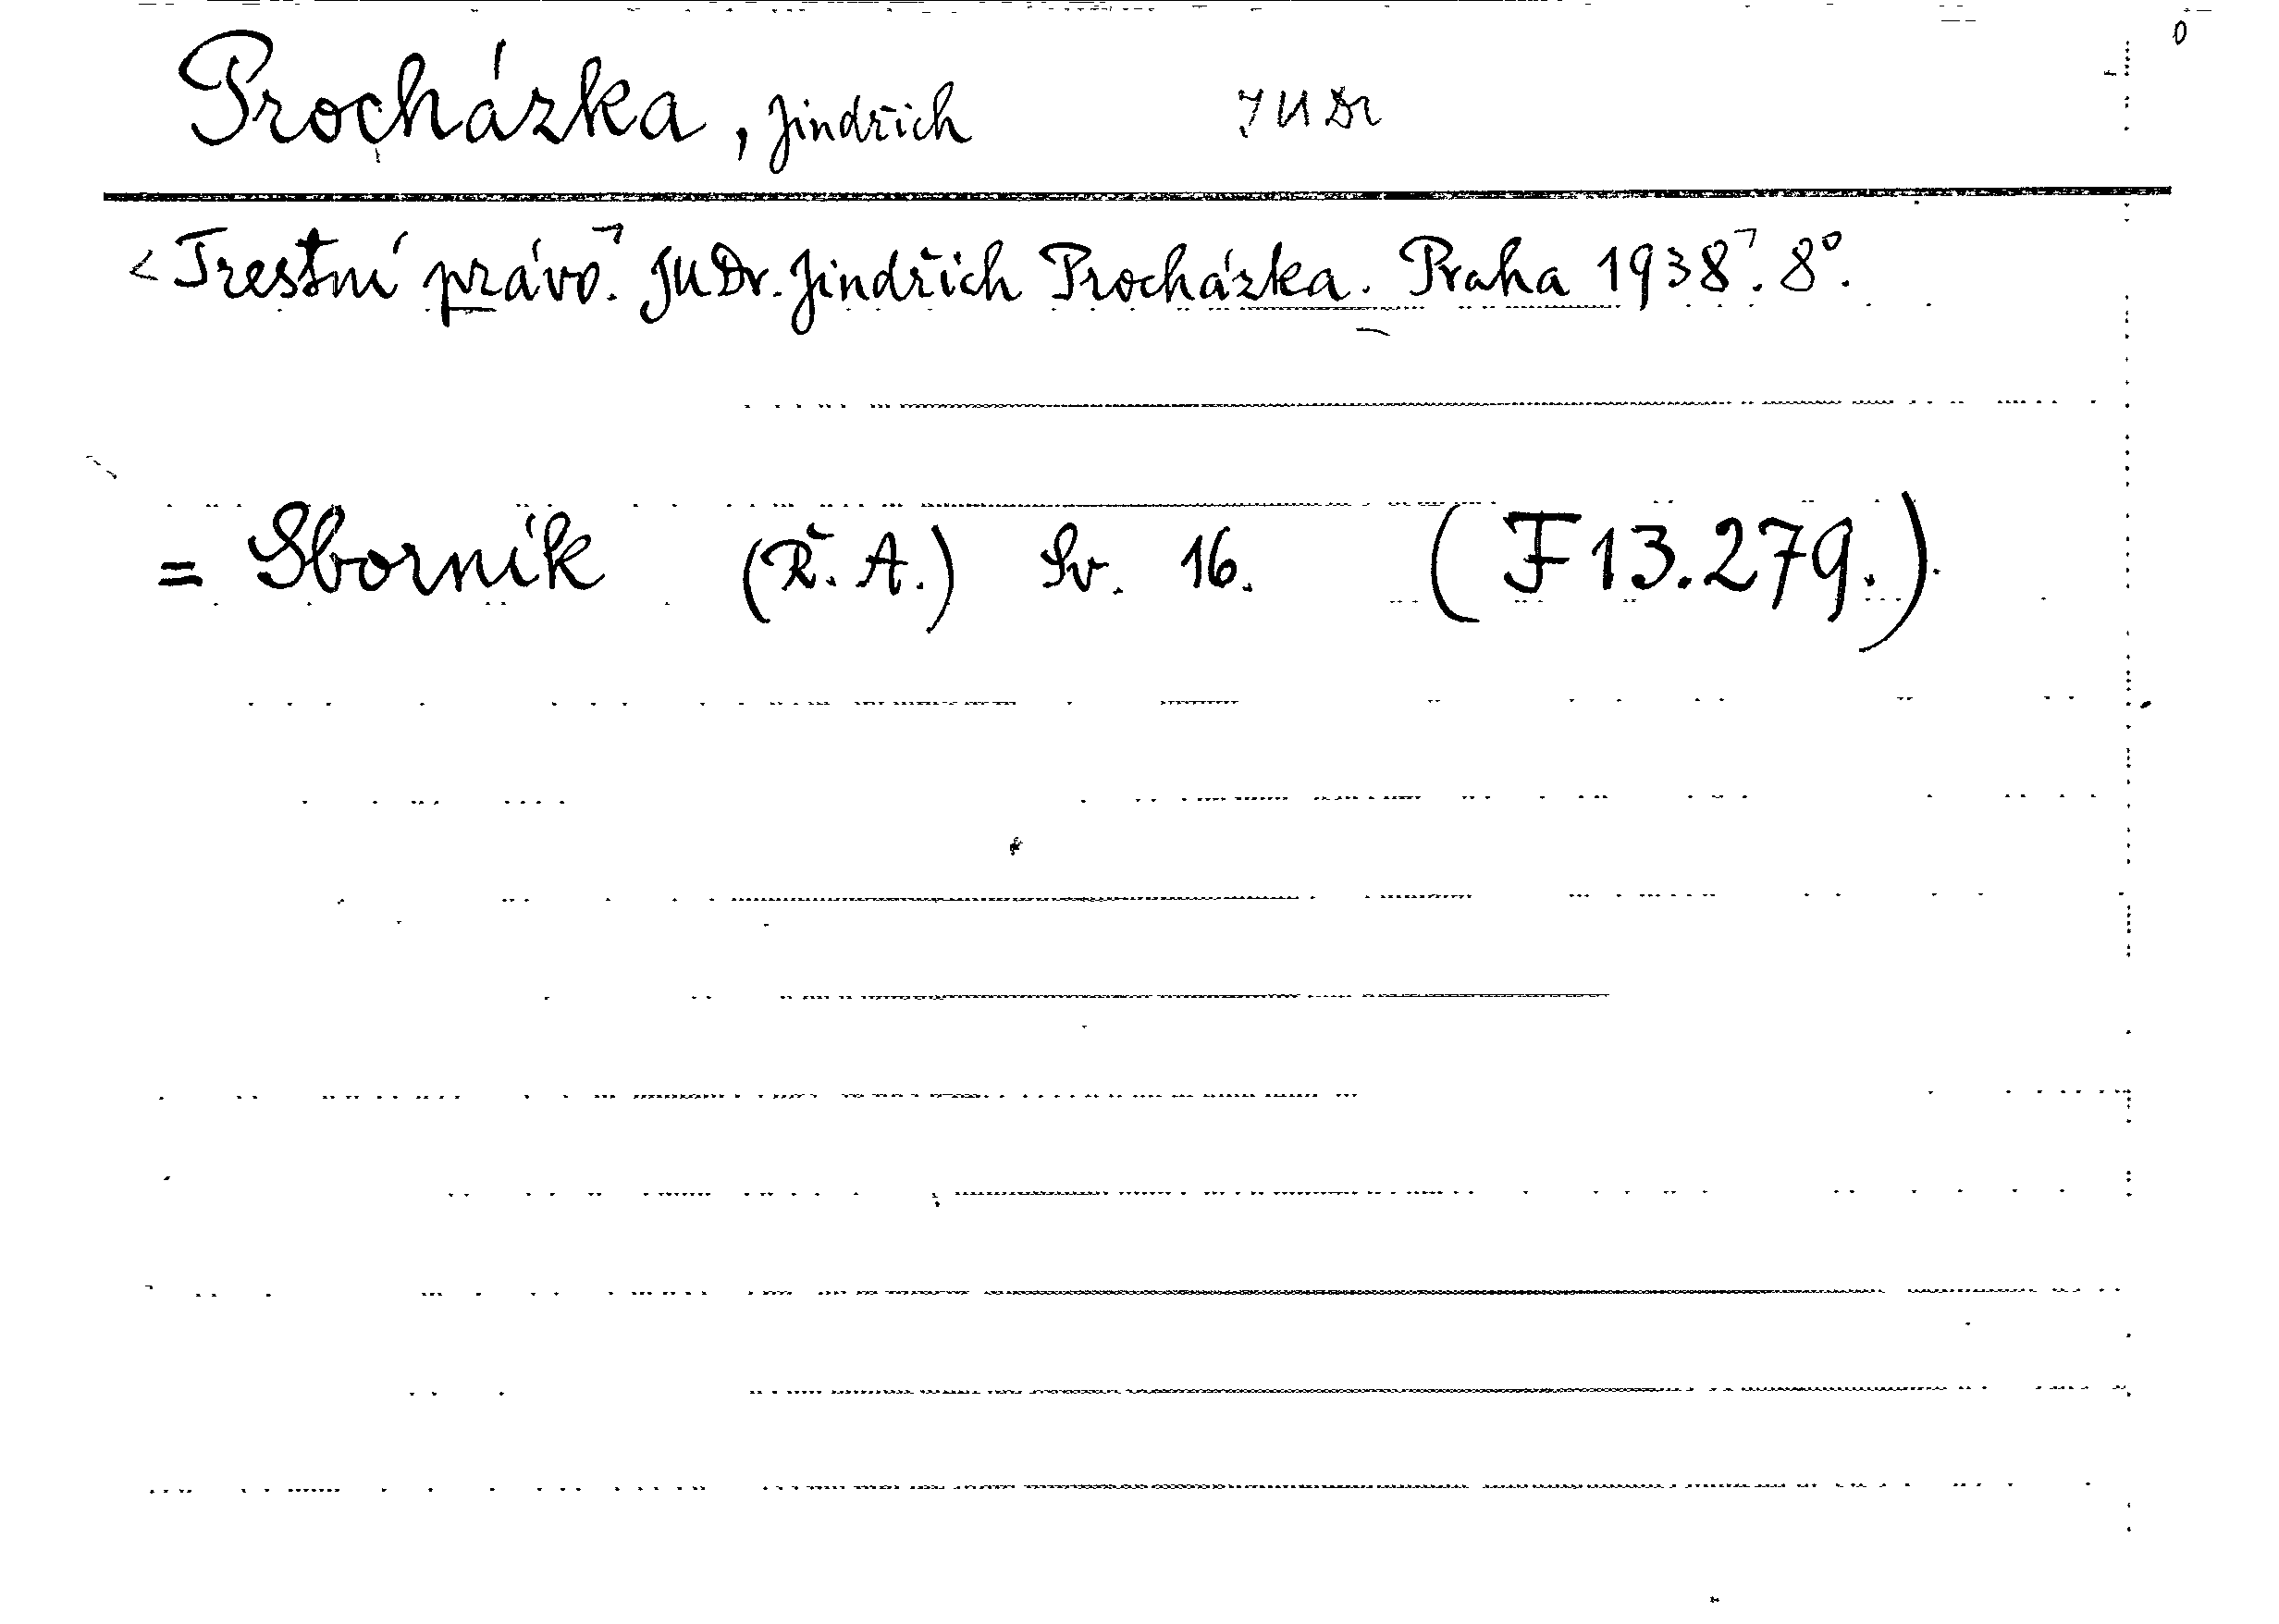 Procházka, Jindřich JUDr
<Trestní právo.⁊ JUDr. Jindřich Procházka. Praha 1938⁊. 8°.
= Sborník (Ř. A.) Sv. 16. (F 13.279.).